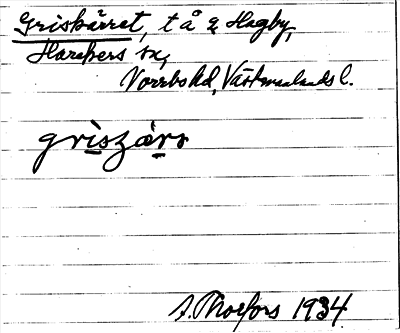 Griskärret, t å Hagby,
Harakers sn,
Norrbo hd, Västmanlands l.
griszärs
A. Thorfors 1934